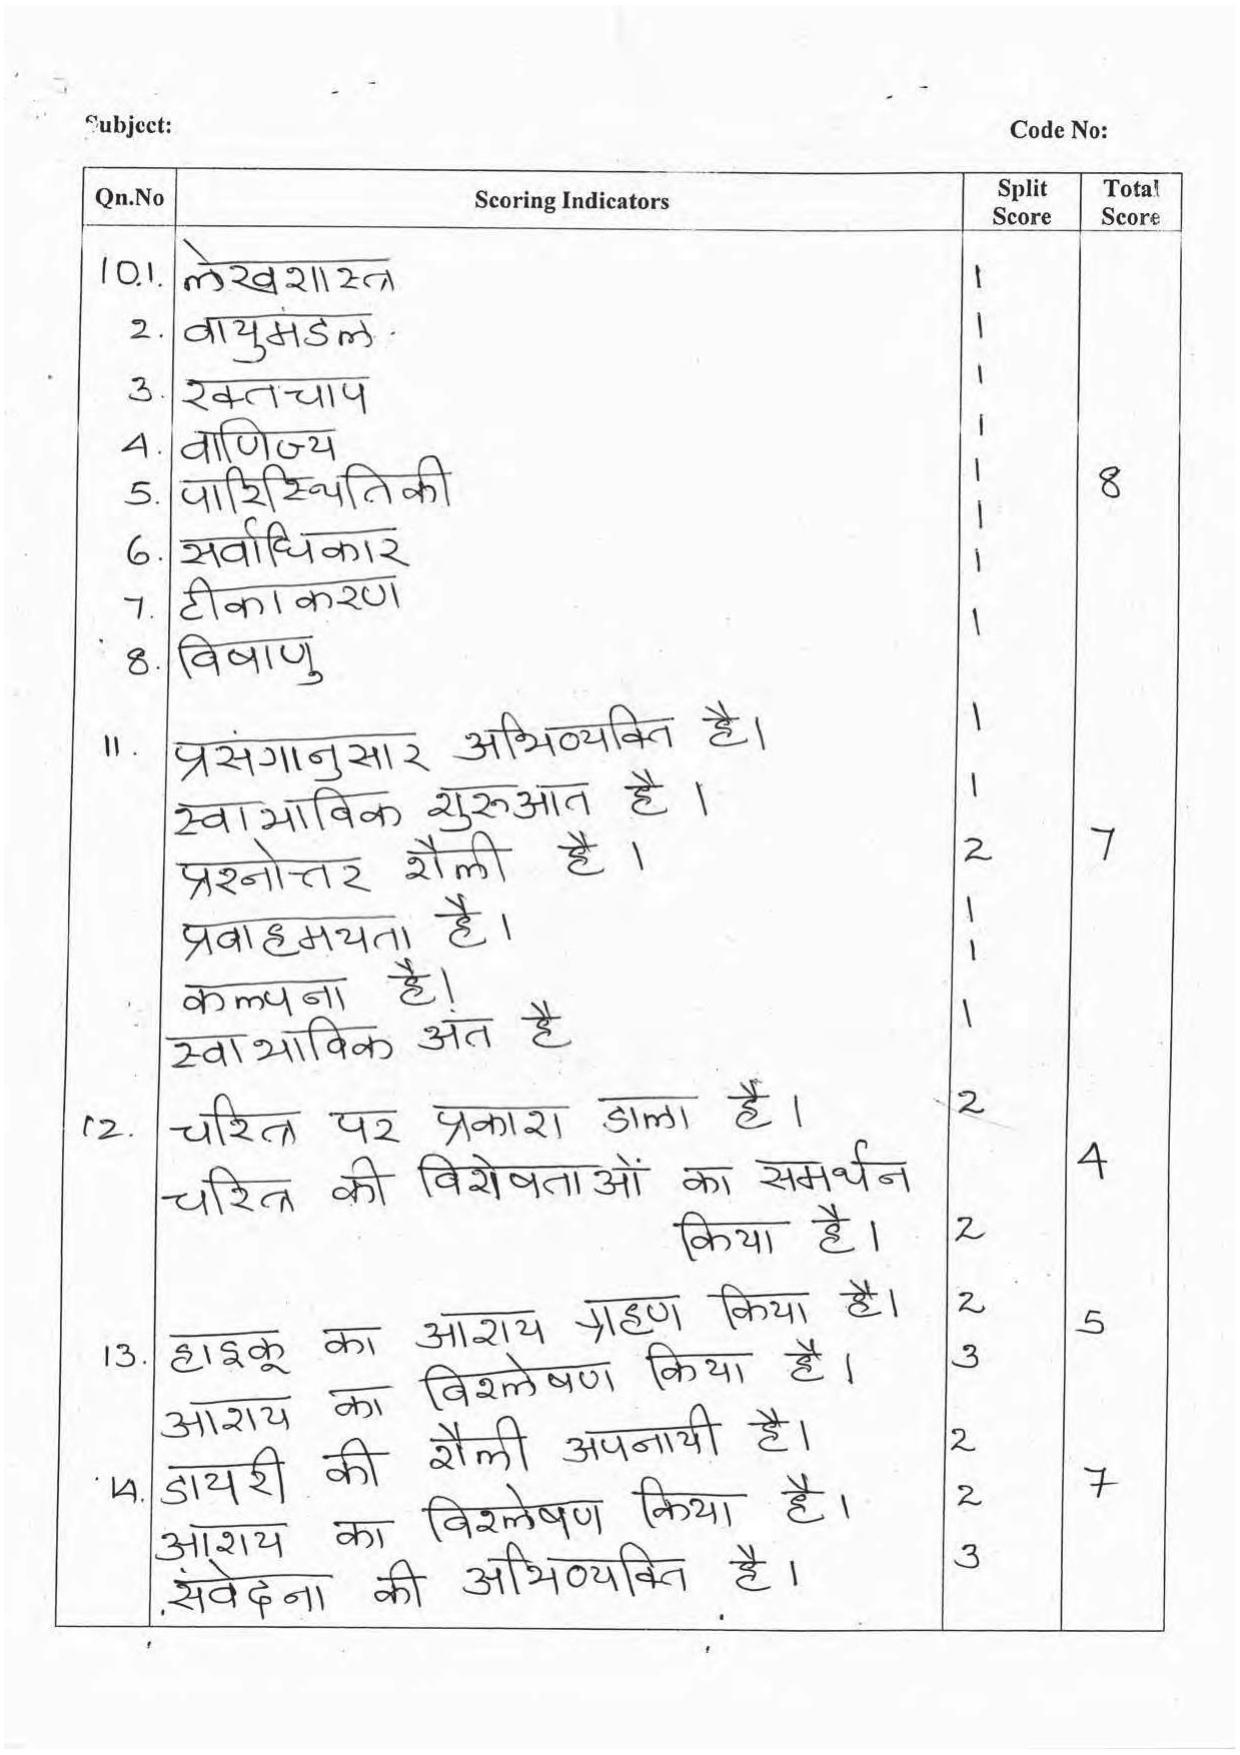 Subject: Code No:
Qn.No Scoring Indicators Split Score Total Score
10.1. लेखशास्त्र 1
2. वायुमंडल 1
3. रक्तचाप 1
4. वाणिज्य 1
5. पारिस्थितिकी 1 8
6. सर्वाधिकार 1
7. टीकाकरण 1
8. विषाणु 1
11. प्रसंगानुसार अभिव्यक्ति है। 1
स्वाभाविक शुरूआत है। 1
प्रश्नोत्तर शैली है। 2 7
प्रवाहमयता है। 1
कल्पना है। 1
स्वाभाविक अंत है 1
12. चरित्र पर प्रकाश डाला है। 2
चरित्र की विशेषताओं का समर्थन 4
किया है। 2
13. हाइकू का आशय ग्रहण किया है। 2 5
आशय का विश्लेषण किया है। 3
14. डायरी की शैली अपनायी है। 2
आशय का विश्लेषण किया है। 2 7
संवेदना की अभिव्यक्ति है। 3